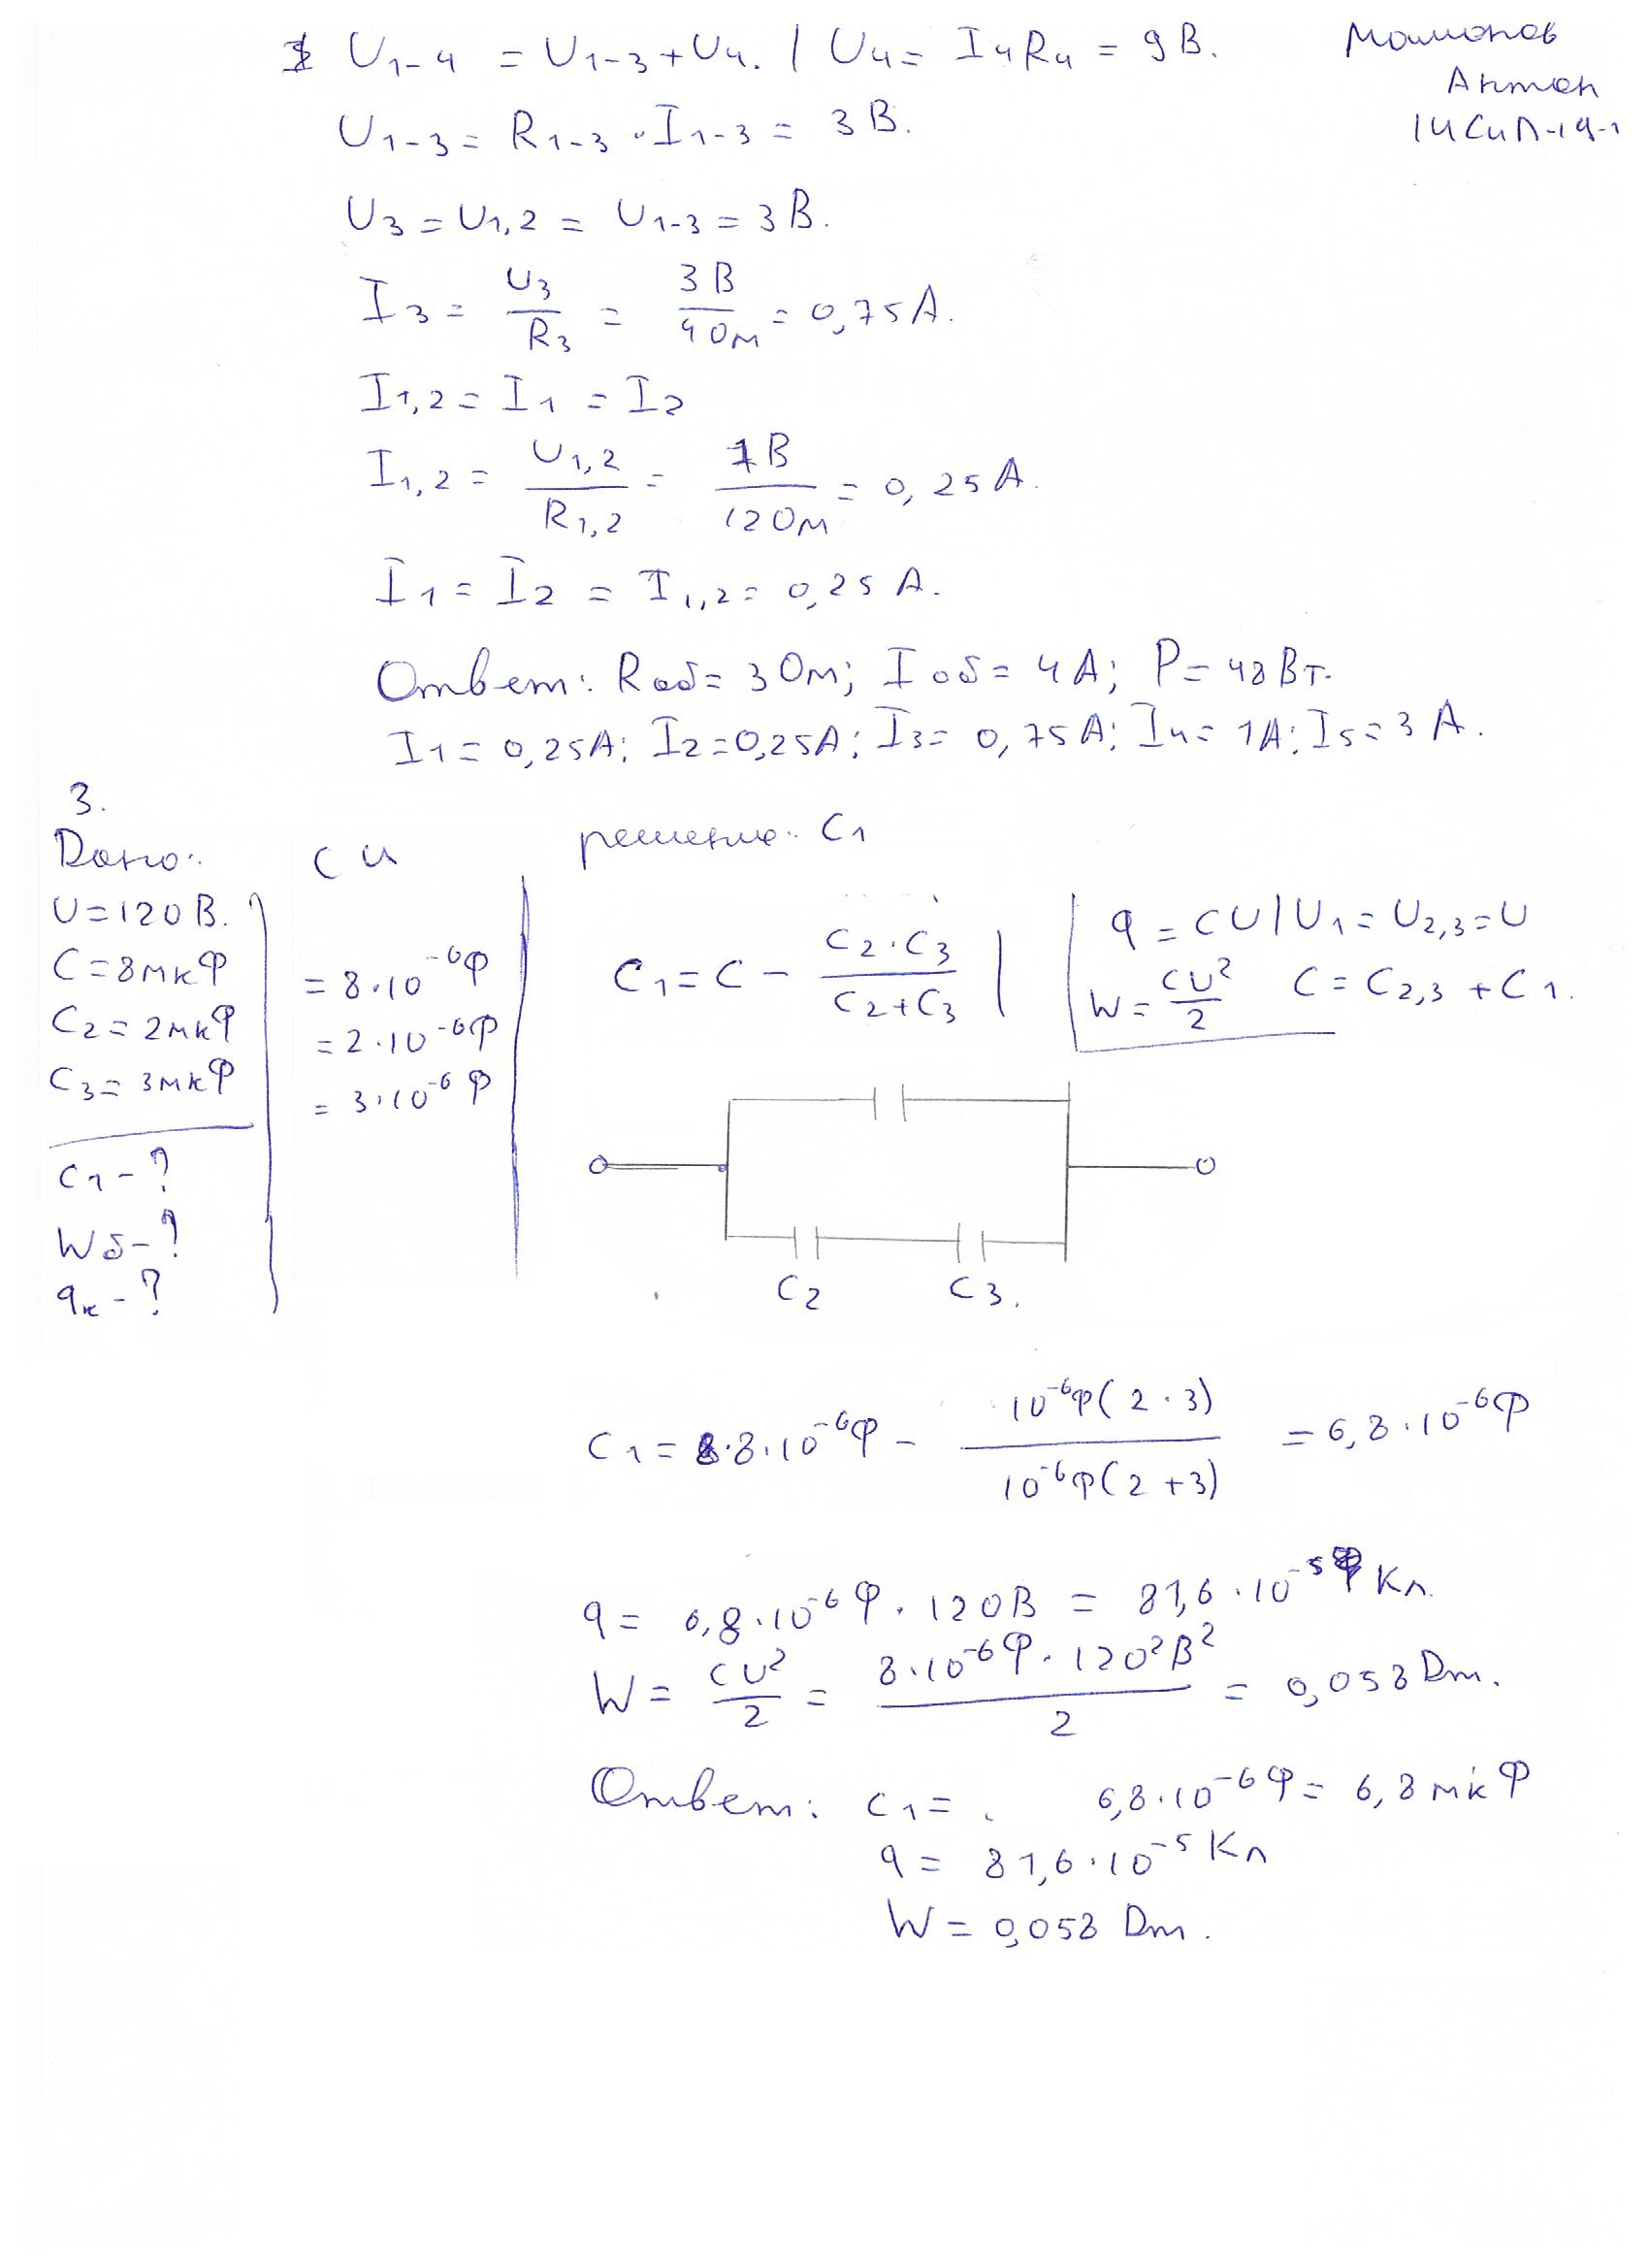 U1-4 = U1-3 + U4. / U4 = I4R4 = 9В.
Антон
14СиП-19-1
U1-3 = R1-3 · I1-3 = 3В.
U3 = U1,2 = U1-3 = 3В.
I3 = U3/R3 = 3В/4Ом = 0,75А.
I1,2 = I1 = I2
I1,2 = U1,2/R1,2 = В/12Ом = 0,25А.
I1 = I2 = I1,2 = 0,25А.
Ответ: Rоб = 3Ом; Iоб = 4А; P = 48Вт.
I1 = 0,25А; I2 = 0,25А; I3 = 0,75А; I4 = 1А; I5 = 3А.
3.
Дано:
U = 120В.
C = 8мкФ
C2 = 2мкФ
C3 = 3мкФ
C1 - ?
Wб - ?
qк - ?
Си
= 8·10⁻⁶Ф
= 2·10⁻⁶Ф
= 3·10⁻⁶Ф
решение. C1
C1 = C - C2·C3/C2+C3 |
q = CU | U1 = U2,3 = U
W = CU²/2 C = C2,3 + C1.
C2 C3.
C1 = 8·10⁻⁶Ф - 10⁻⁶Ф(2·3)/10⁻⁶Ф(2+3) = 6,8·10⁻⁶Ф
q = 6,8·10⁻⁶Ф·120В = 81,6·10⁻⁵ Кл.
W = CU²/2 = 8·10⁻⁶Ф·120²В²/2 = 0,058 Dm.
Ответ: C1 = 6,8·10⁻⁶Ф = 6,8 мкФ
q = 81,6·10⁻⁵ Кл
W = 0,058 Dm.